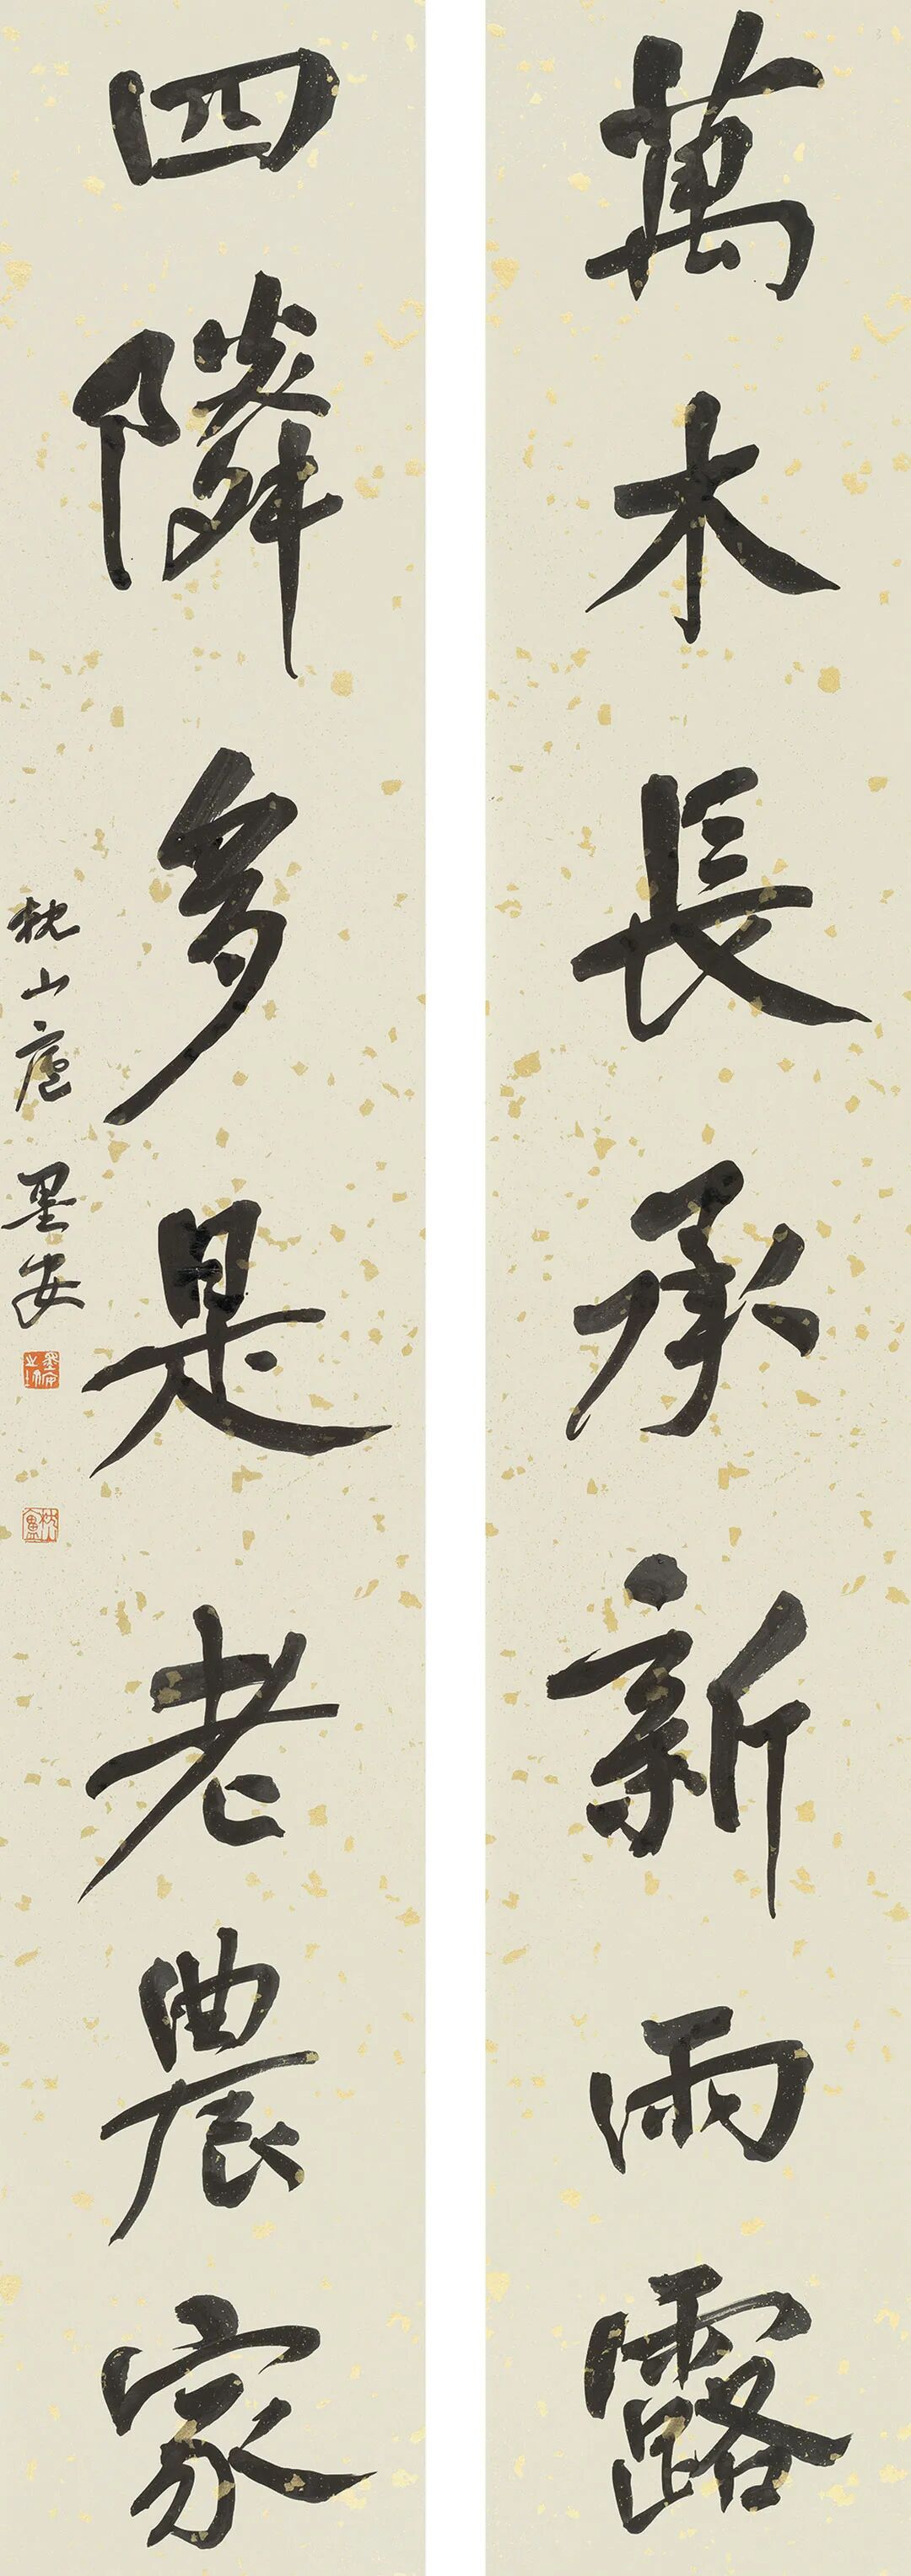 萬木長承新雨露
四隣多是老農家
枕山廬 墨安